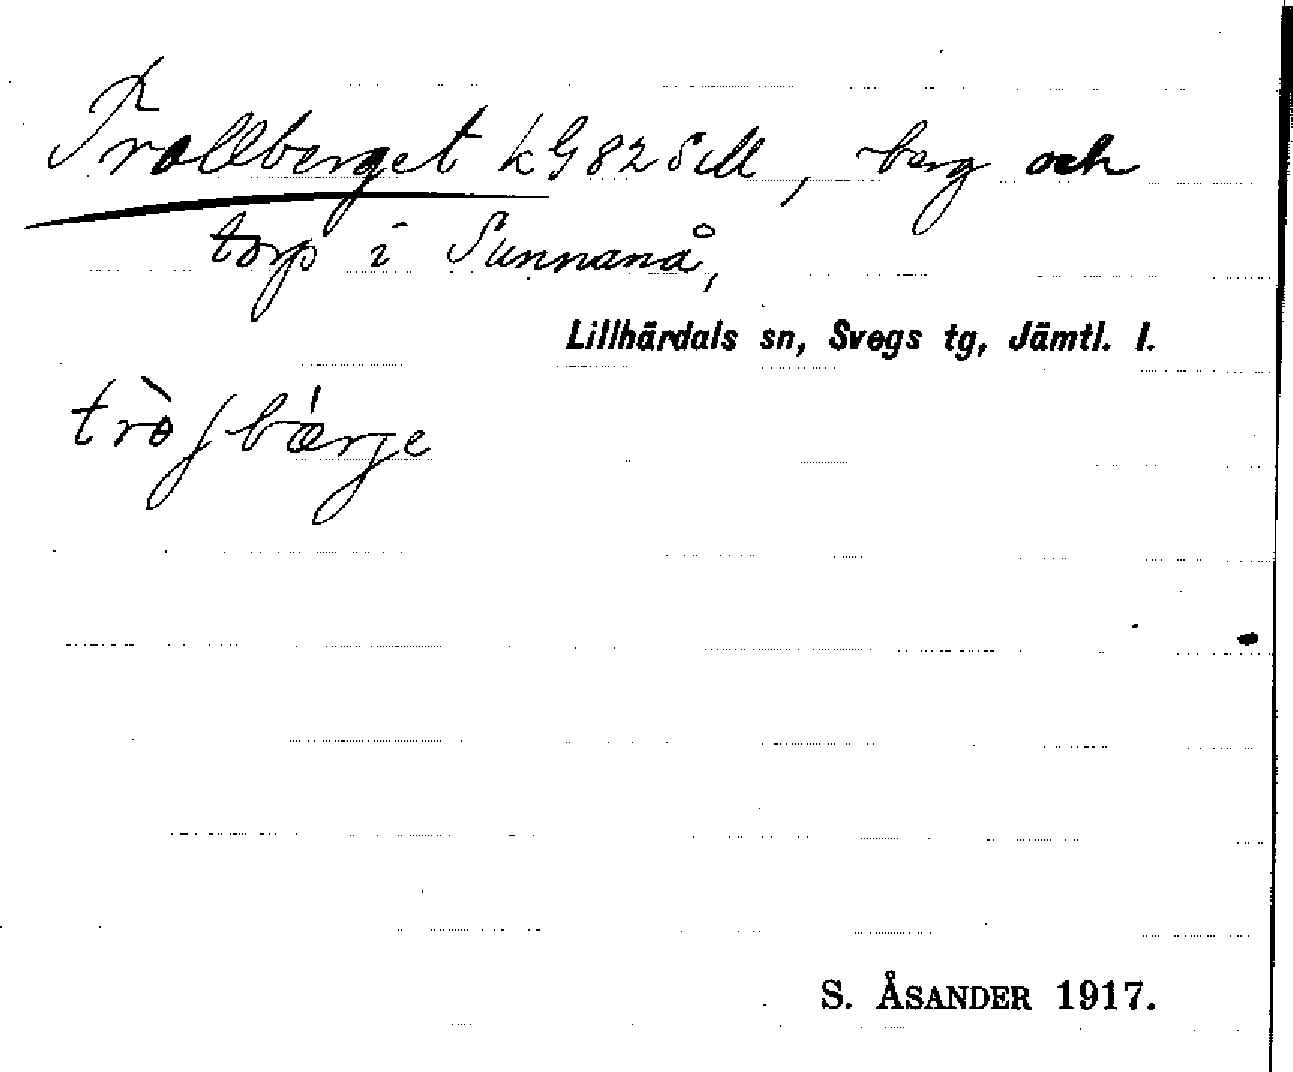 Trollberget kG82SM, berg och
torp i Sunnanå,
Lillhärdals sn, Svegs tg, Jämtl. l.
trò∫bǽrje
S. ÅSANDER 1917.